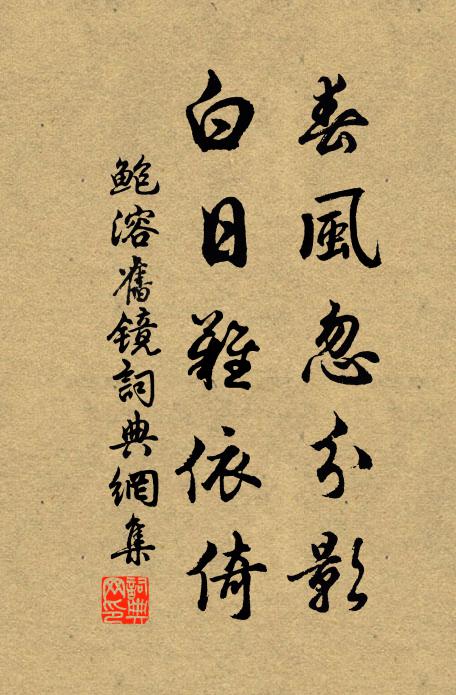 春風忽分影
白日難依倚
鮑溶舊鏡詞典網集
詞典网印